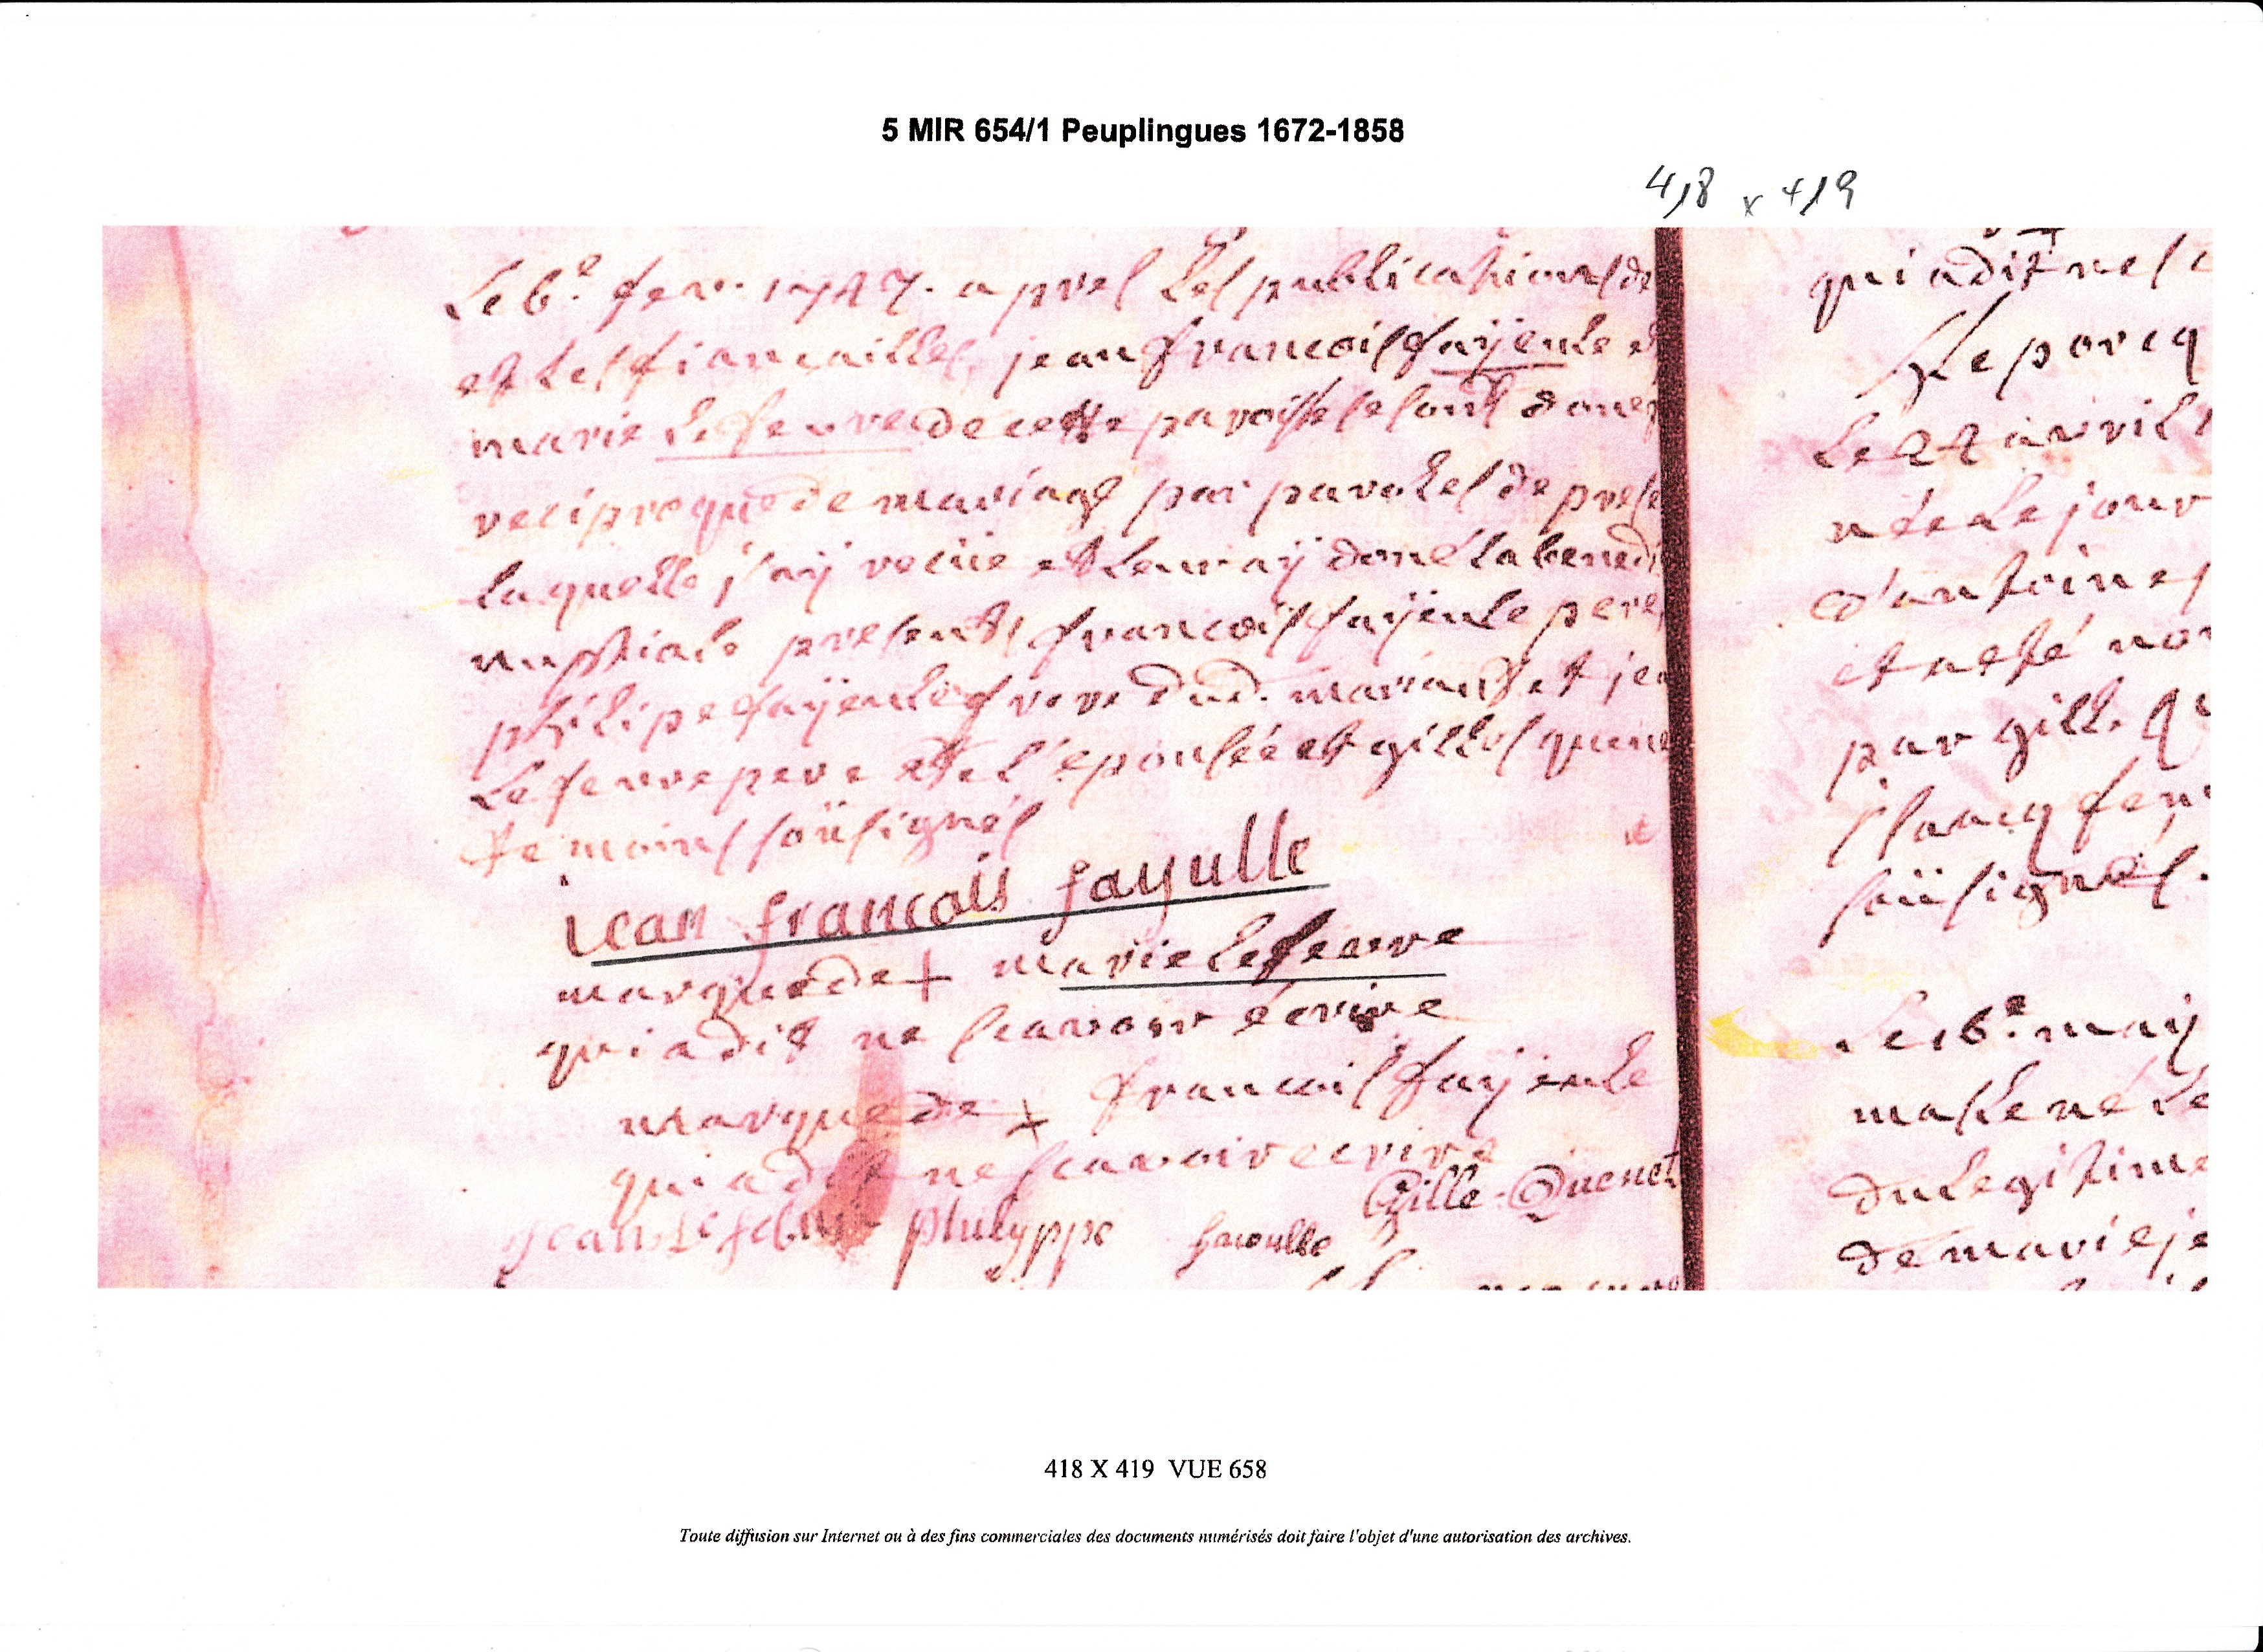 5 MIR 654/1 Peuplingues 1672-1858
418 x 419
Le 6.e fev. 1747. apres Les publications de
et Les fiançailles, jean francois fayeule e
marie Lefeuvre de cette paroisse se sont donep
reciproque de mariage par paroles de prese
laquelle j'aÿ recüe et Leur aÿ doné La bened
nuptiale presents francois faÿeule pere
philipe faÿeule frere dud. mariant et jea
Lefeuvre pere de L'epousée et gilles quene
temoins soüsignés
jean francois fayulle
marque de + marie Lefeuvre
qui a dit ne scavoir écrire
marque de + francois faÿeule
qui a dit ne scavoir ecrire
Gille Quenet
jean Philyppe faieulle
qui a dit ne s
Le porcq
Le avril
née Le jour
d'antoine
et a eté no
par gille q
fev
soüsignés.
Le 16.e maÿ
né Le
du Legitime
de marie je
418 X 419 VUE 658
Toute diffusion sur Internet ou à des fins commerciales des documents numérisés doit faire l'objet d'une autorisation des archives.